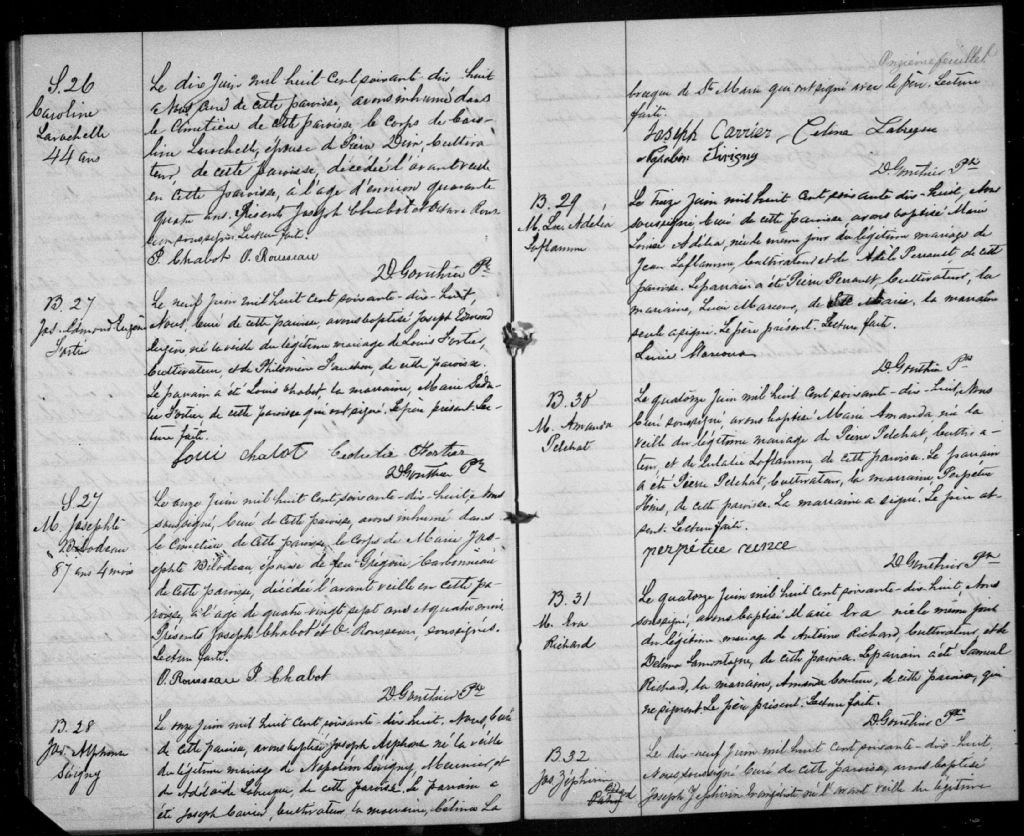 S. 26
Caroline
Larochelle
44 ans
Le dix Juin mil huit cent soixante-dix-huit
a Nous Curé de cette paroisse, avons inhumé dans
le Cimetière de cette paroisse le corps de Caro-
line Larochelle, épouse de Pierre Dion Cultiva-
teur de cette paroisse, décédée l'avant veille
en cette paroisse, à l'age d'environ quarante
quatre ans. Présent Joseph Chabot et Octave Rous-
seau soussignés. Lecture faite.
P. Chabot O. Rousseau
D Gonthier Ptre
B. 27
Jos. Edmond Eugène
Fortier
Le neuf Juin mil huit cent soixante-dix-huit,
Nous, Curé de cette paroisse, avons baptisé Joseph Edmond
Eugène né la veille du légitime mariage de Louis Fortier,
Cultivateur, et de Philomène, de cette paroisse.
Le parrain a été Louis Chabot, la marraine, Marie
Fortier de cette paroisse qui ont signé. Le père présent. Lec-
ture faite.
Loui Chabot Fortier
D Gonthier Ptr
S. 27
M. Josephte
Bilodeau
87 ans 4 mois
Le onze Juin mil huit cent, soixante-dix-huit, Nous
soussigné, Curé de cette paroisse, avons inhumé dans
le Cimetière de cette paroisse, le corps de Marie Jos-
ephte Bilodeau, épouse de feu Grégoire Carbonneau
de cette paroisse, décédée l'avant veille en cette pa-
roisse, à l'age de quatre-vingt sept ans et quatre mois.
Présents Joseph Chabot et O. Rousseau, soussignés.
Lecture faite.
O. Rousseau P. Chabot
D Gonthier Ptr
B. 28
Jos. Alphonse
Sévigny
Le onze Juin mil huit cent soixante-dix-huit. Nous, Curé
de cette paroisse, avons baptisé Joseph Alphonse né la veille
du légitime mariage de Napoléon Sévigny, Meunier, et
de Adélaïde, de cette paroisse. Le parrain a
été Joseph Carrier, Cultivateur, la marraine, Célina La
Onzième feuillet
brecque de Ste Marie qui ont signé avec le père. Lecture
faite.
Joseph Carrier Celina
Napoléon Sivigny
D Gonthier Ptr
B. 29
M. Adelia
Laflamme
Le treize Juin mil huit cent soixante-dix-huit, Nous
soussigné Curé de cette paroisse avons baptisé Marie
Louise Adélia, née le même jour du légitime mariage de
Jean Laflamme, Cultivateur et de Adèle Perrault de cette
paroisse. Le parrain a été Pierre Perrault Cultivateur, la
marraine, de Ste Marie. La marraine
seule a signé. Le père présent. Lecture faite.
D Gonthier Ptr
B. 30
M. Amanda
Pelchat
Le quatorze Juin mil huit cent soixante-dix-huit, Nous
Curé soussigné, avons baptisé Marie Amanda née la
veille du légitime mariage de Pierre Pelchat, Cultiva-
teur, et de Eulalie Laflamme, de cette paroisse. Le parrain
a été Pierre Pelchat, Cultivateur, la marraine, Perpétue
de cette paroisse. La marraine a signé. Le père ab-
sent. Lecture faite.
perpétue
D Gonthier Ptr
B. 31
M. Eva
Richard
Le quatorze Juin mil huit cent soixante-dix-huit, Nous
soussigné, avons baptisé Marie Eva née le même jour
du légitime mariage de Antoine Richard, Cultivateur, et de
Delima Lamontagne, de cette paroisse. Le parrain a été Samuel
Richard, la marraine, Amanda Couture, de cette paroisse, qui
ne signent. Le père présent. Lecture faite.
D Gonthier Ptr
B. 32
Jos. Zéphirin
Le dix-neuf Juin mil huit cent soixante-dix-huit,
Nous soussigné Curé de cette paroisse, avons baptisé
Joseph Zéphirin Evangéliste né l'avant veille du légitime